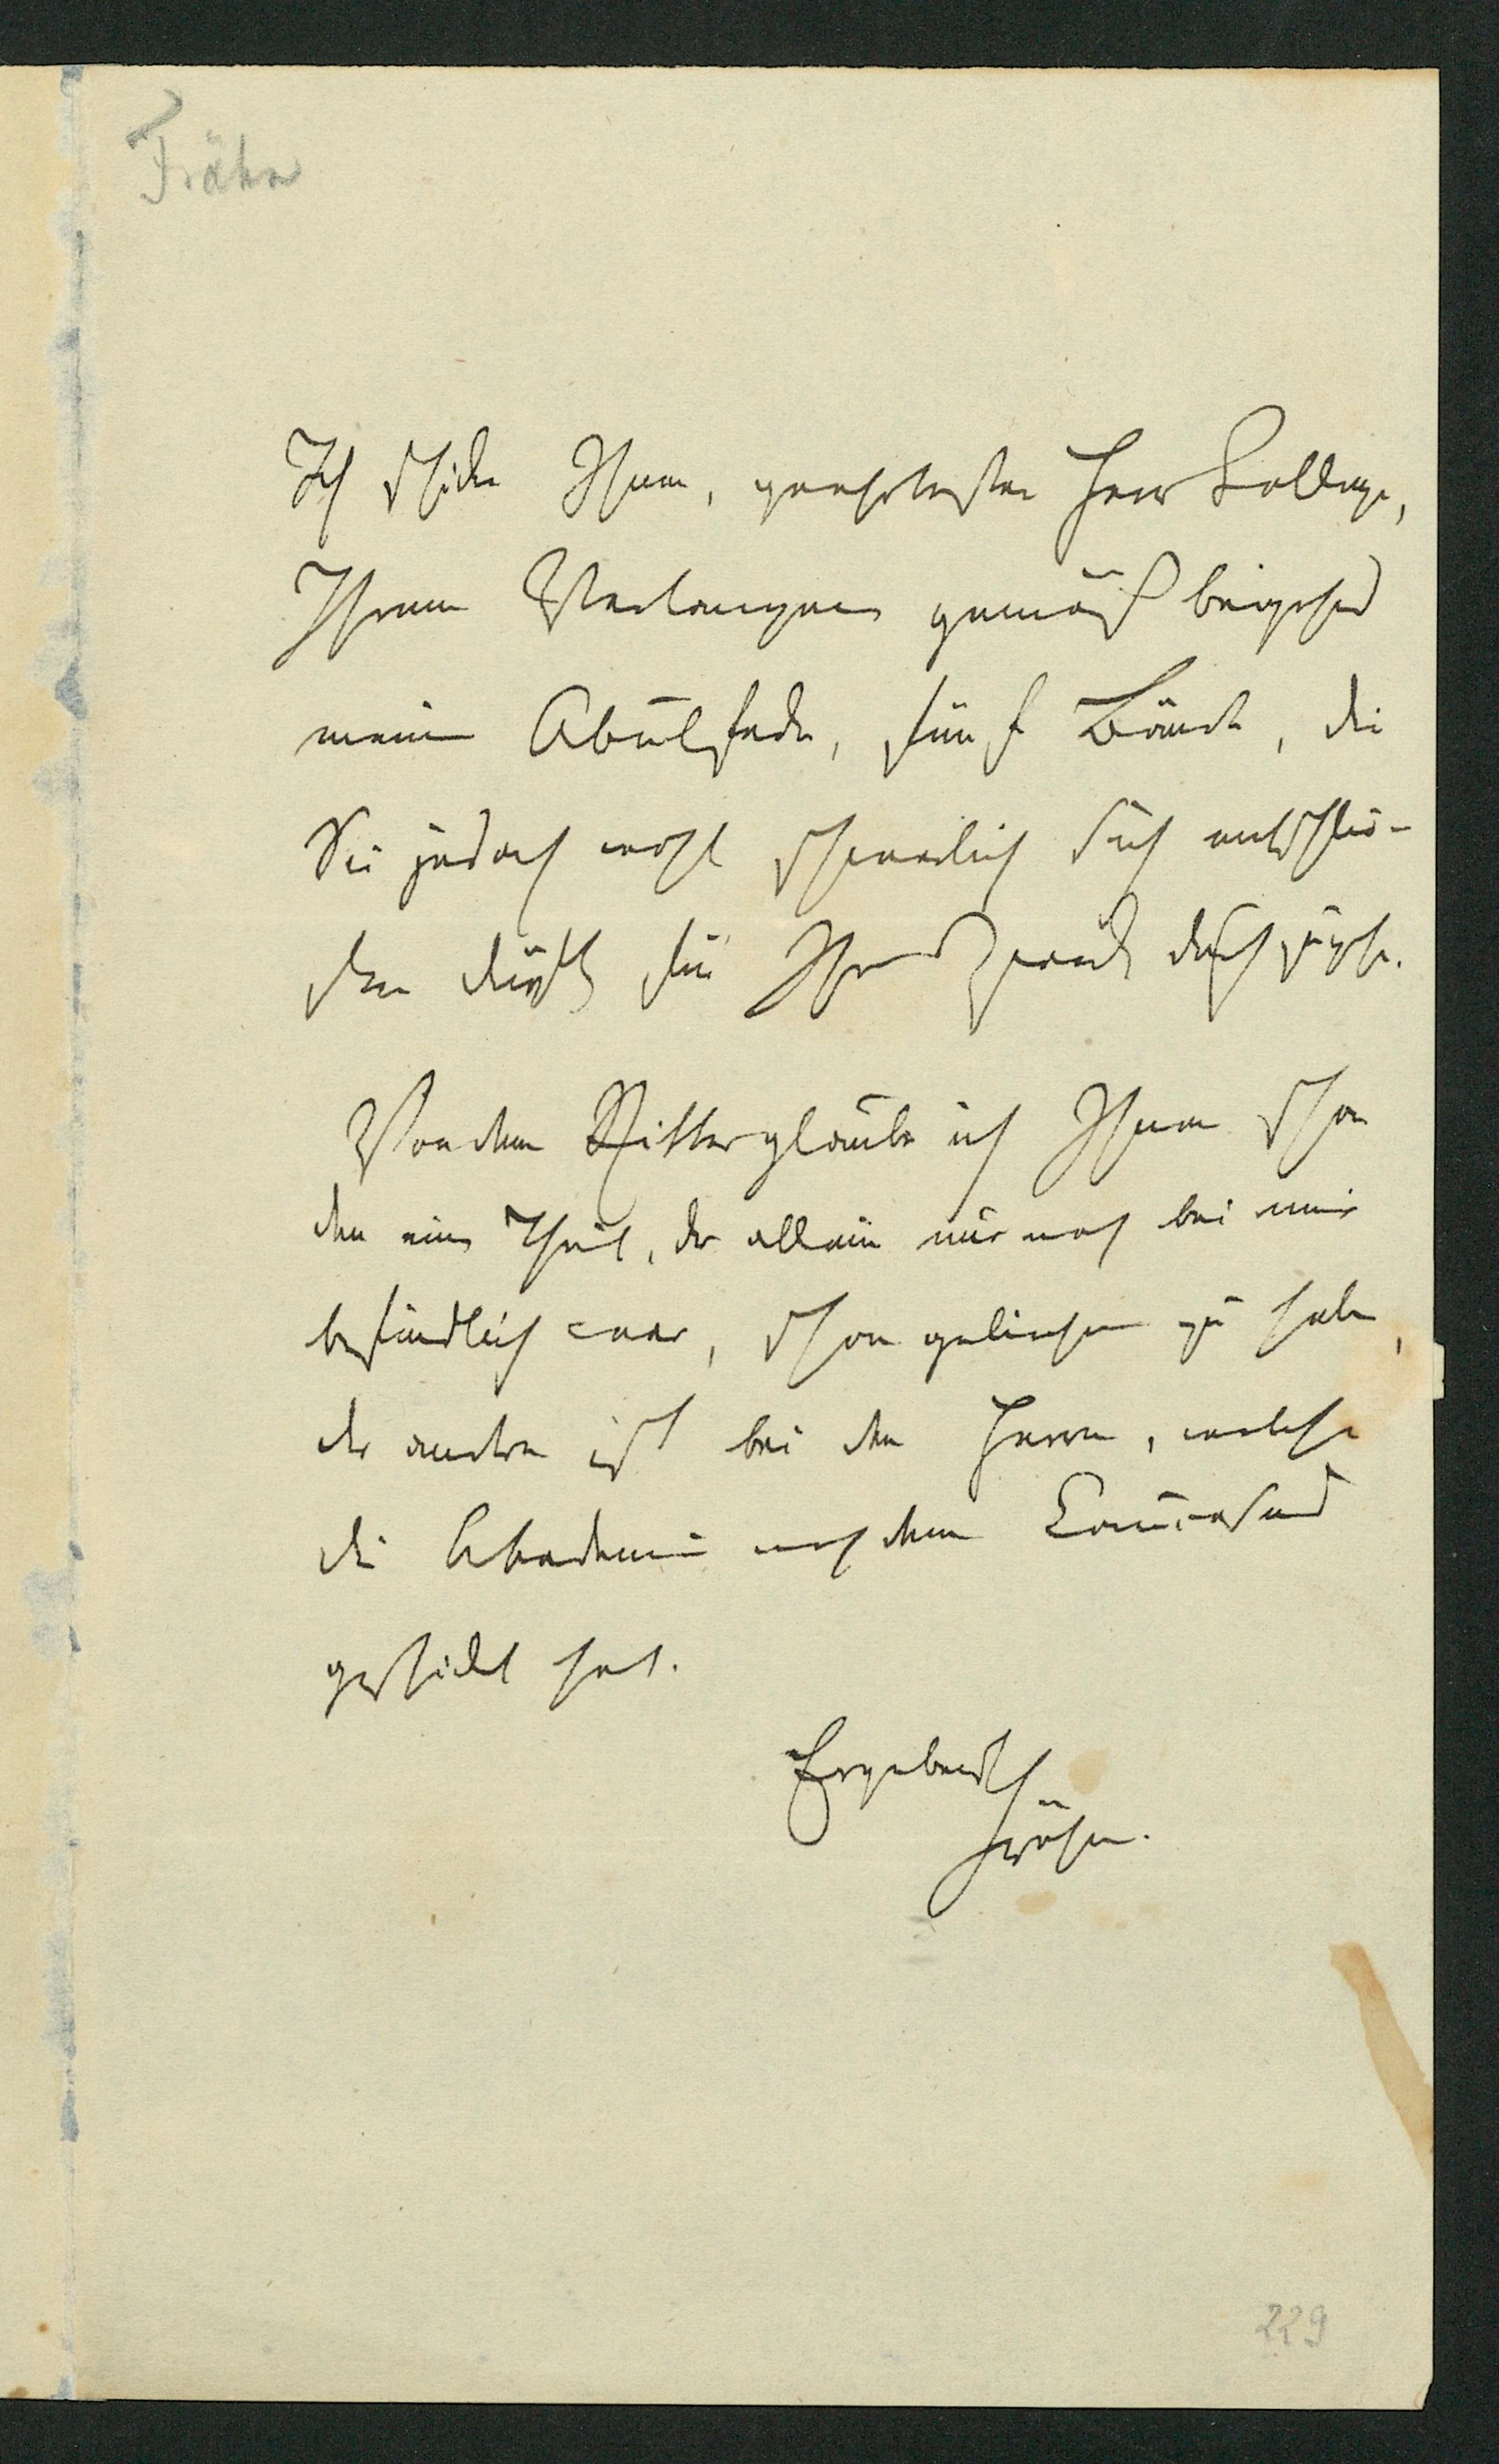 Frähn
Ich schicke Ihnen, geehrtester Herr College,
Ihrem Verlangen gemäß beigehend
meinen Abulfeda, fünf Bände, die
Sie jedoch wohl schwerlich sich entschlie-
ßen dürften für Ihren Zweck durchzugehn.
Von dem Ritter glaube ich Ihnen schon
den einen Theil, der allein nur noch bei mir
befindlich war, schon geliehen zu haben,
der andere ist bei den Herren, welche
die Akademie nach dem Caucasus
geschickt hat.
Ergebenst
Frähn.
229